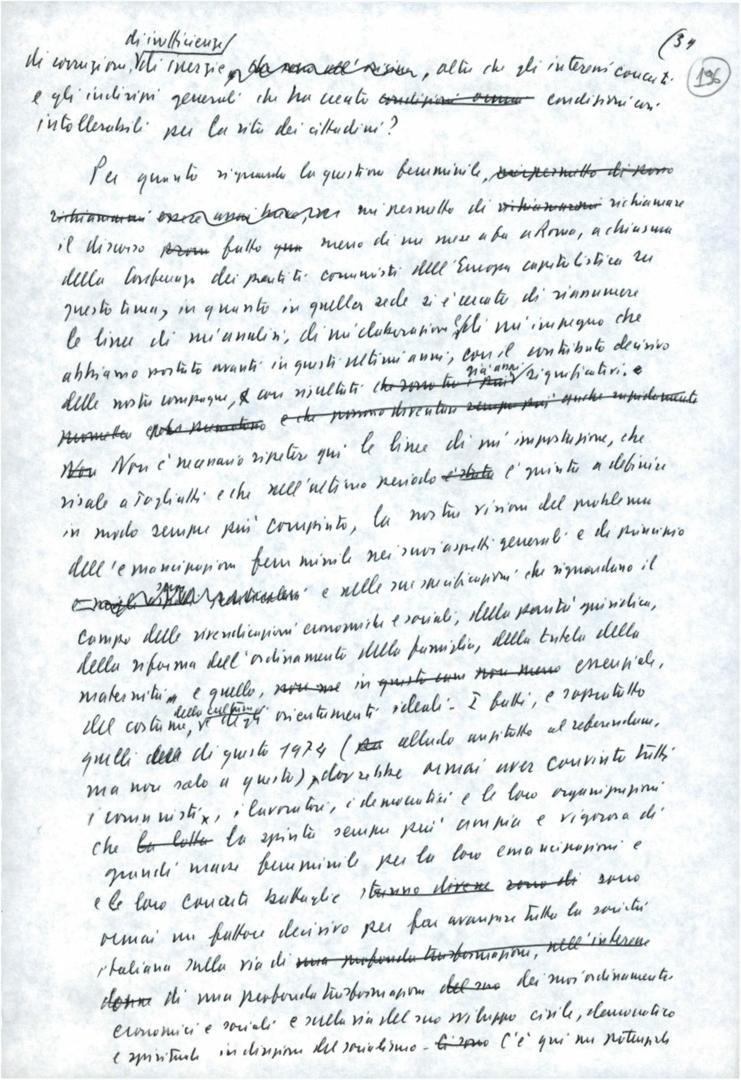 di inefficienze
(34
196
di corruzione, di inerzie, , altro che gli interessi concreti
e gli indirizzi generali che ha creato condizioni ormai condizioni così
intollerabili per la vita dei cittadini?
Per quanto riguarda la questione femminile, mi permetto di
richiamarmi mi permetto di richiamarmi richiamare
il discorso fatto meno di un mese fa a Roma, a chiusura
della Conferenza dei partiti comunisti dell'Europa capitalistica su
questo tema, in quanto in quella sede si è cercato di riassumere
le linee di un'analisi, di un'elaborazione e di un impegno che
abbiamo portato avanti in questi ultimi anni, con il contributo decisivo
delle nostre compagne, e con risultati già assai significativi.
e che possono diventare sempre più anche rapidamente
Non Non è necessario ripetere qui le linee di un'impostazione, che
risale a Togliatti e che nell'ultimo periodo è stata è giunta a definire
in modo sempre più compiuto, la nostra visione del problema
dell'emancipazione femminile nei suoi aspetti generali e di principio
e nelle sue specificazioni che riguardano il
campo delle rivendicazioni economiche e sociali, della parità giuridica,
della riforma dell'ordinamento della famiglia, della tutela della
maternità, e quello, non me in questo non meno essenziale,
del costume, della cultura, degli orientamenti ideali. I fatti, e soprattutto
quelli di questo 1974 (alludo anzitutto al referendum,
ma non solo a questo), dovrebbe ormai aver convinto tutti
i comunisti, i lavoratori, i democratici e le loro organizzazioni
che la lotta la spinta sempre più ampia e vigorosa di
grandi masse femminili per la loro emancipazione e
e le loro concrete battaglie stanno sono di sono
ormai un fattore decisivo per far avanzare tutta la società
italiana sulla via di una profonda trasformazione, nell'interesse
di una profonda trasformazione del suo dei suoi ordinamenti
economici e sociali e sulla via del suo sviluppo civile, democratico
e spirituale in direzione del socialismo. Ci sono C'è qui un potenziale